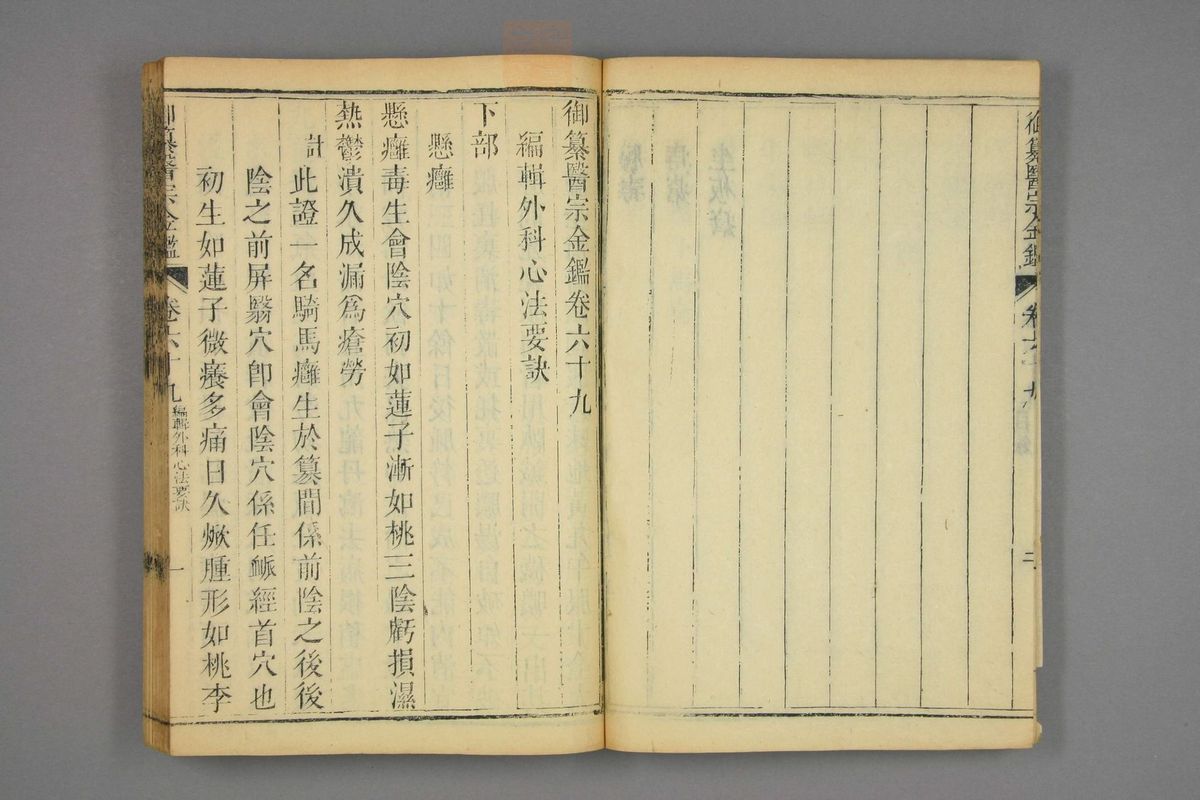 御纂醫宗金鑑
卷六十九
二
御纂醫宗金鑑卷六十九
編輯外科心法要訣
下部
懸癰
懸癰毒生會陰穴初如蓮子漸如桃三陰虧損濕
熱鬱潰久成漏爲瘡勞
註此證一名騎馬癰生於篡間係前陰之後後
陰之前屏翳穴卽會陰穴係任脈經首穴也
初生如蓮子微癢多痛日久焮腫形如桃李
御纂醫宗金鑑
卷六十九
編輯外科心法要訣
一